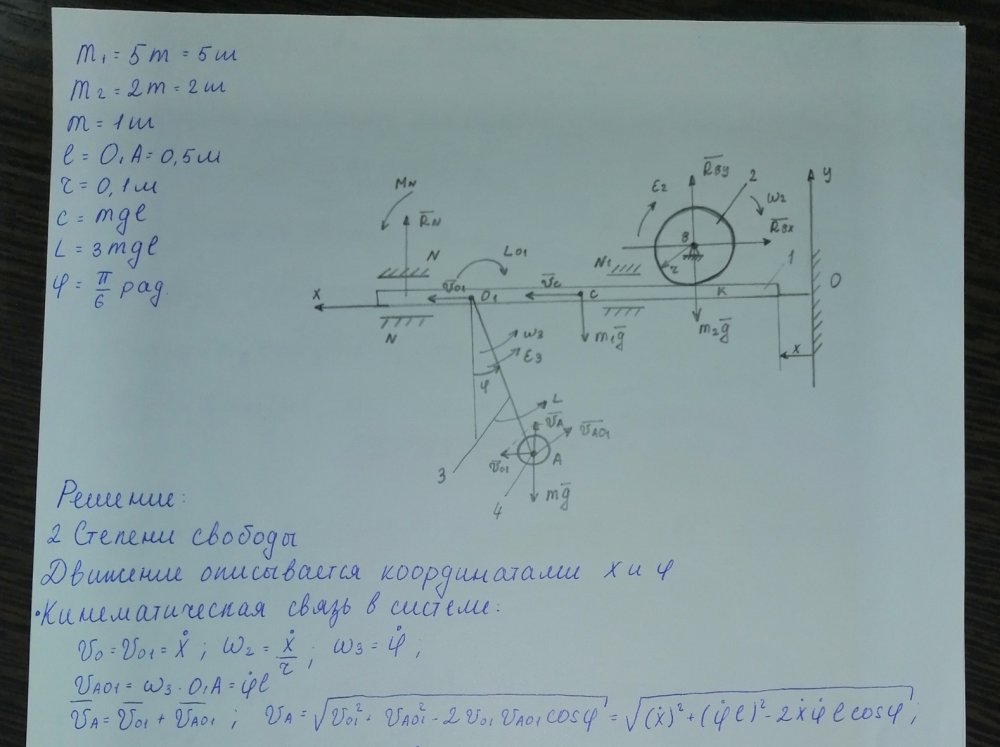 m₁ = 5m = 5 ш
m₂ = 2m = 2 ш
m = 1 ш
ℓ = O₁A = 0,5 м
r = 0,1 м
c = mgl
L = 3mgl
φ = π/6 рад.
M_N
R̄_N
N
N
L_O1
v̄_O1
O₁
x
v̄_c
c
m₁ḡ
N₁
ε₂
R̄_By
2
ω₂
R̄_Bx
B
r
K
1
m₂ḡ
y
O
x
ω₃
ε₃
φ
L
v̄_A
v̄_AO1
v̄_O1
A
3
4
mḡ
Решение:
2 Степени свободы
Движение описывается координатами x и φ
• Кинематическая связь в системе:
v₀ = v_O1 = ẋ ; ω₂ = ẋ/r ; ω₃ = φ̇ ;
v_AO1 = ω₃ · O₁A = φ̇ℓ
v̄_A = v̄_O1 + v̄_AO1 ; v_A = √(v_O1² + v_AO1² - 2 v_O1 v_AO1 cosφ) = √((ẋ)² + (φ̇ℓ)² - 2ẋφ̇ℓ cosφ) ;